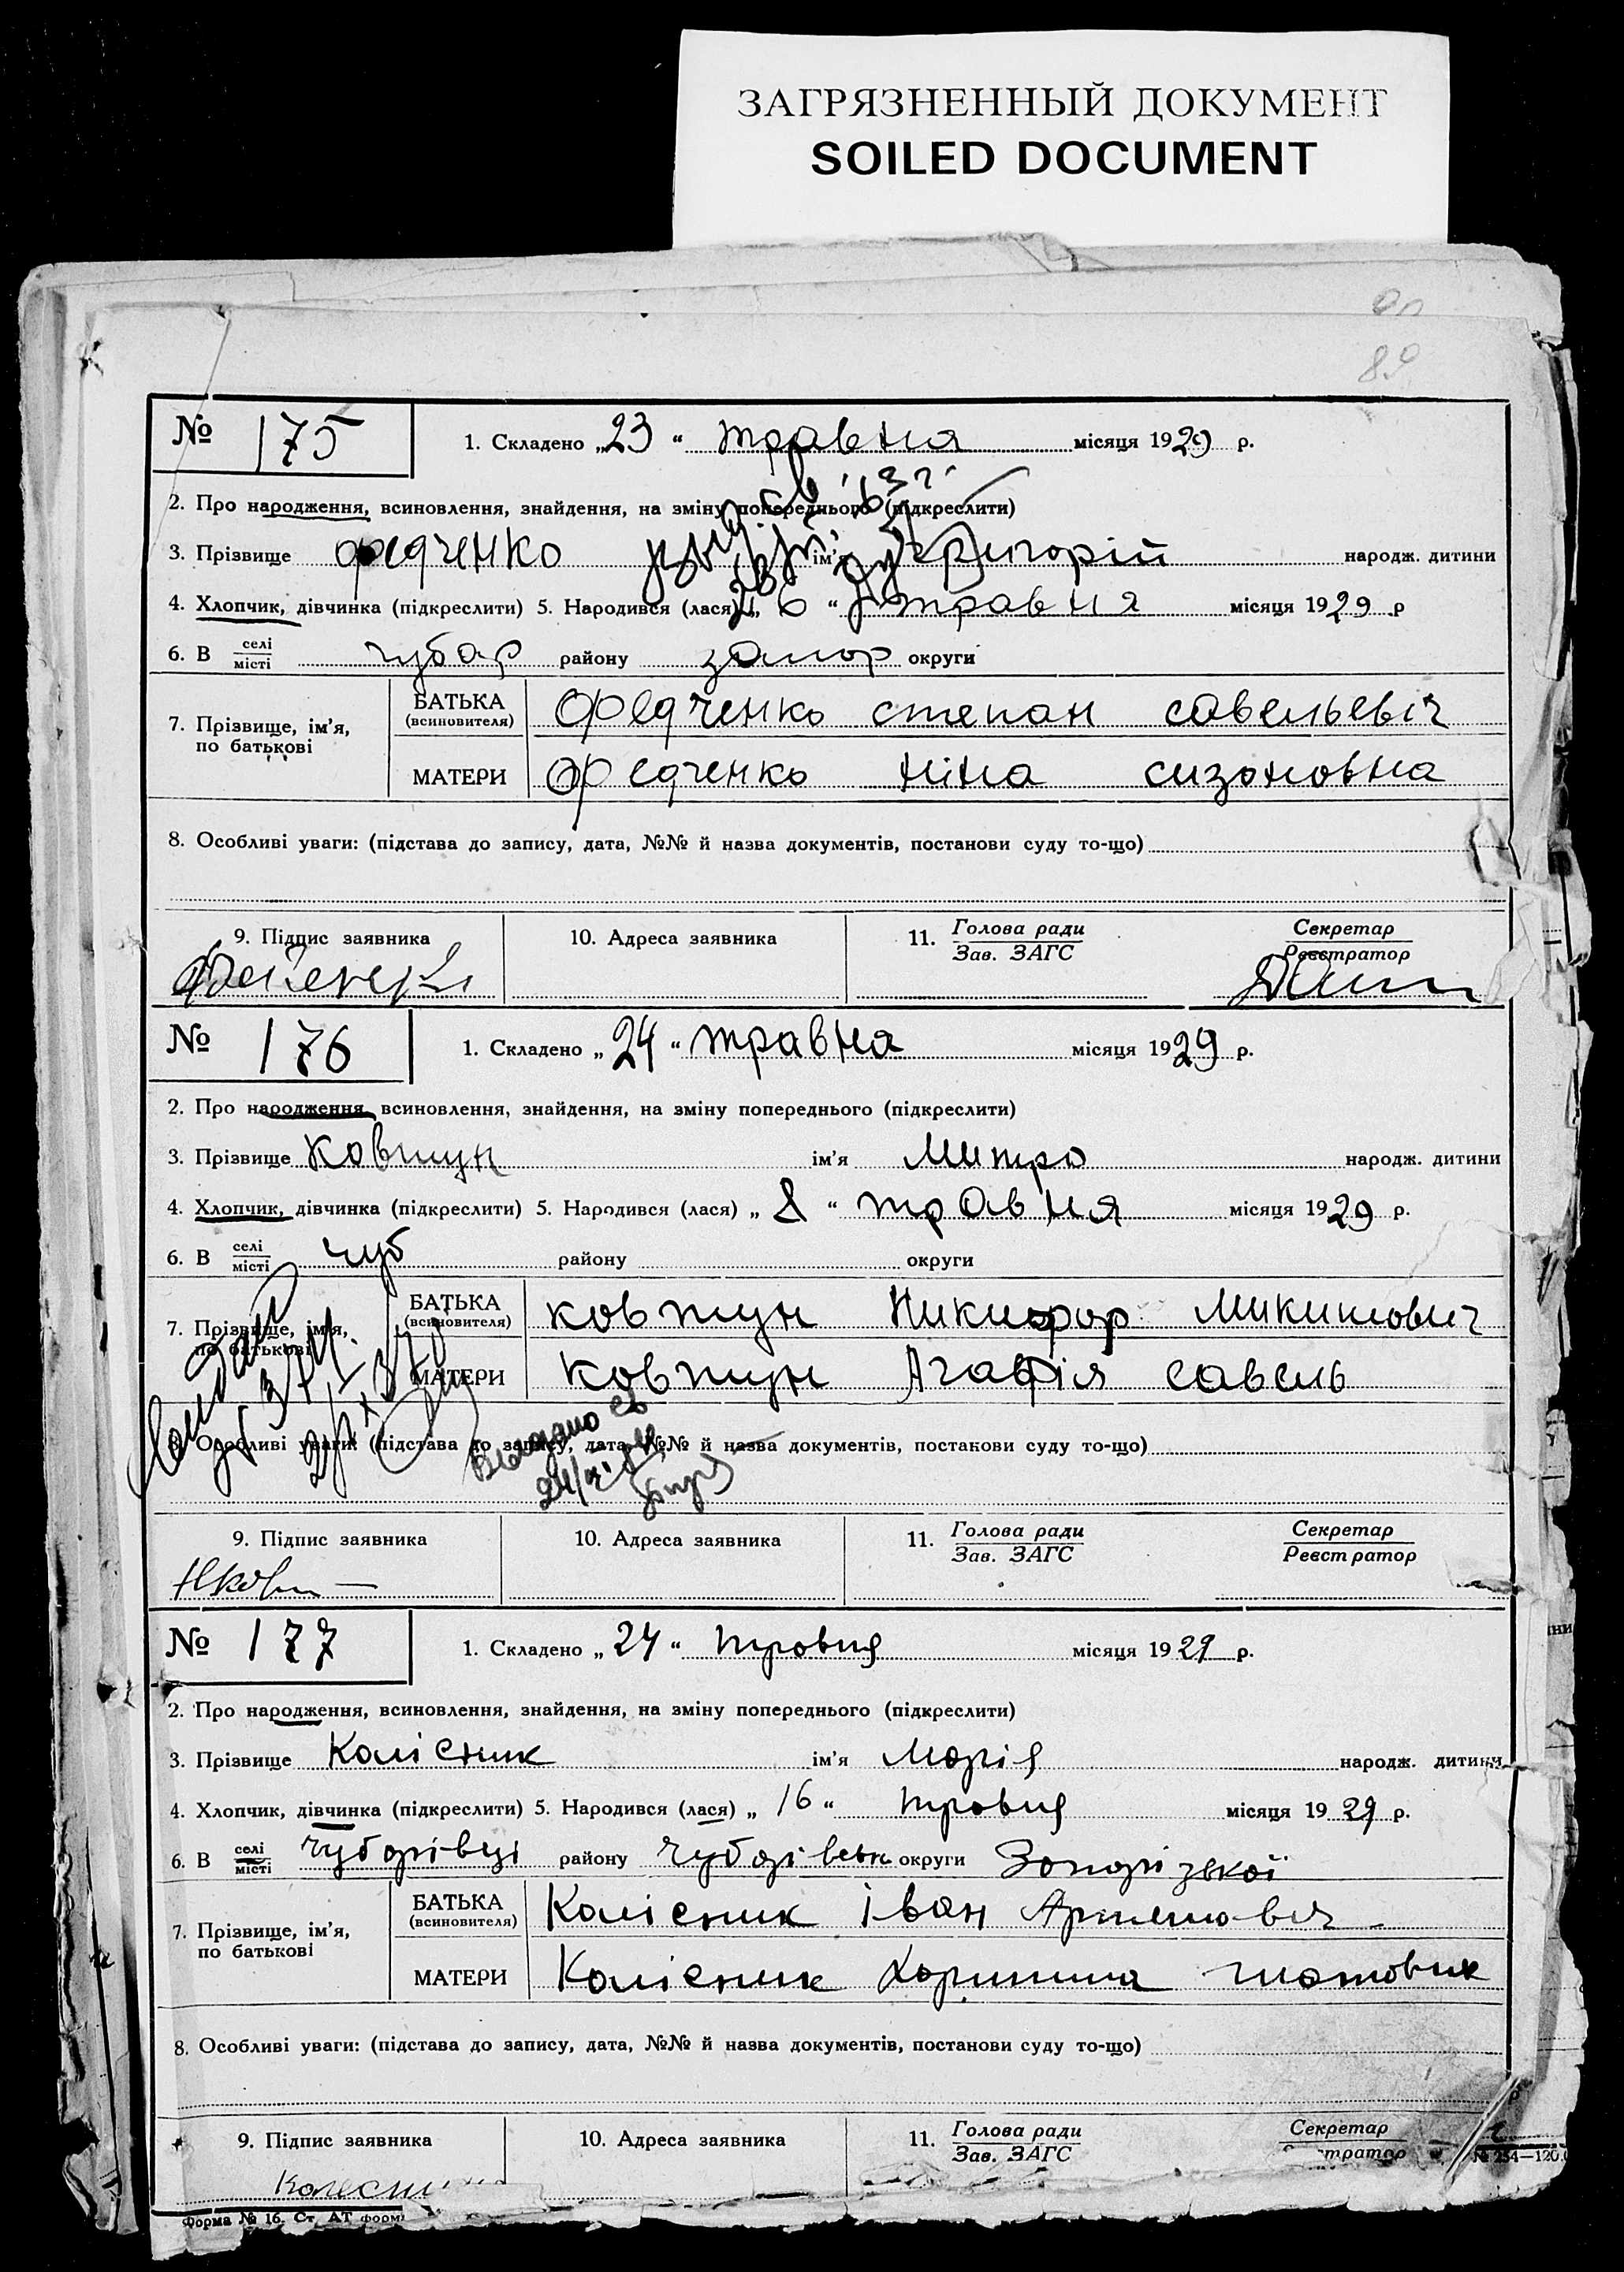 ЗАГРЯЗНЕННЫЙ ДОКУМЕНТ
SOILED DOCUMENT
89
№ 175
1. Складено „23“ травня місяця 1929 р.
2. Про народження, всиновлення, знайдення, на зміну попереднього (підкреслити)
3. Прізвище Федченко ім'я Григорій народж. дитини
4. Хлопчик, дівчинка (підкреслити) 5. Народився (лася) „6“ травня місяця 1929 р
6. В селі місті чубар району запор округи
7. Прізвище, ім'я, по батькові
БАТЬКА (всиновителя) Федченко степан савельевіч
МАТЕРИ Федченко ніна сизоновна
8. Особливі уваги: (підстава до запису, дата, №№ й назва документів, постанови суду то-що)
9. Підпис заявника
10. Адреса заявника
11. Голова ради Зав. ЗАГС
Секретар Реєстратор
№ 176
1. Складено „24“ травня місяця 1929 р.
2. Про народження, всиновлення, знайдення, на зміну попереднього (підкреслити)
3. Прізвище Ковтун ім'я Митро народж. дитини
4. Хлопчик, дівчинка (підкреслити) 5. Народився (лася) „8“ травня місяця 1929 р.
6. В селі місті чуб району округи
7. Прізвище, ім'я, по батькові
БАТЬКА (всиновителя) ковтун Никифор Микитович
МАТЕРИ ковтун Агафія савель
8. Особливі уваги: (підстава до запису, дата, №№ й назва документів, постанови суду то-що)
9. Підпис заявника
10. Адреса заявника
11. Голова ради Зав. ЗАГС
Секретар Реєстратор
№ 177
1. Складено „24“ травня місяця 1929 р.
2. Про народження, всиновлення, знайдення, на зміну попереднього (підкреслити)
3. Прізвище Колісник ім'я Марія народж. дитини
4. Хлопчик, дівчинка (підкреслити) 5. Народився (лася) „16“ травня місяця 1929 р.
6. В селі місті Чубарівці району Чубарівськ округи Запорізької
7. Прізвище, ім'я, по батькові
БАТЬКА (всиновителя) Колісник Іван Артемович
МАТЕРИ Колісник
8. Особливі уваги: (підстава до запису, дата, №№ й назва документів, постанови суду то-що)
9. Підпис заявника
10. Адреса заявника
11. Голова ради Зав. ЗАГС
Секретар
Форма № 16. Ст. АТ форм